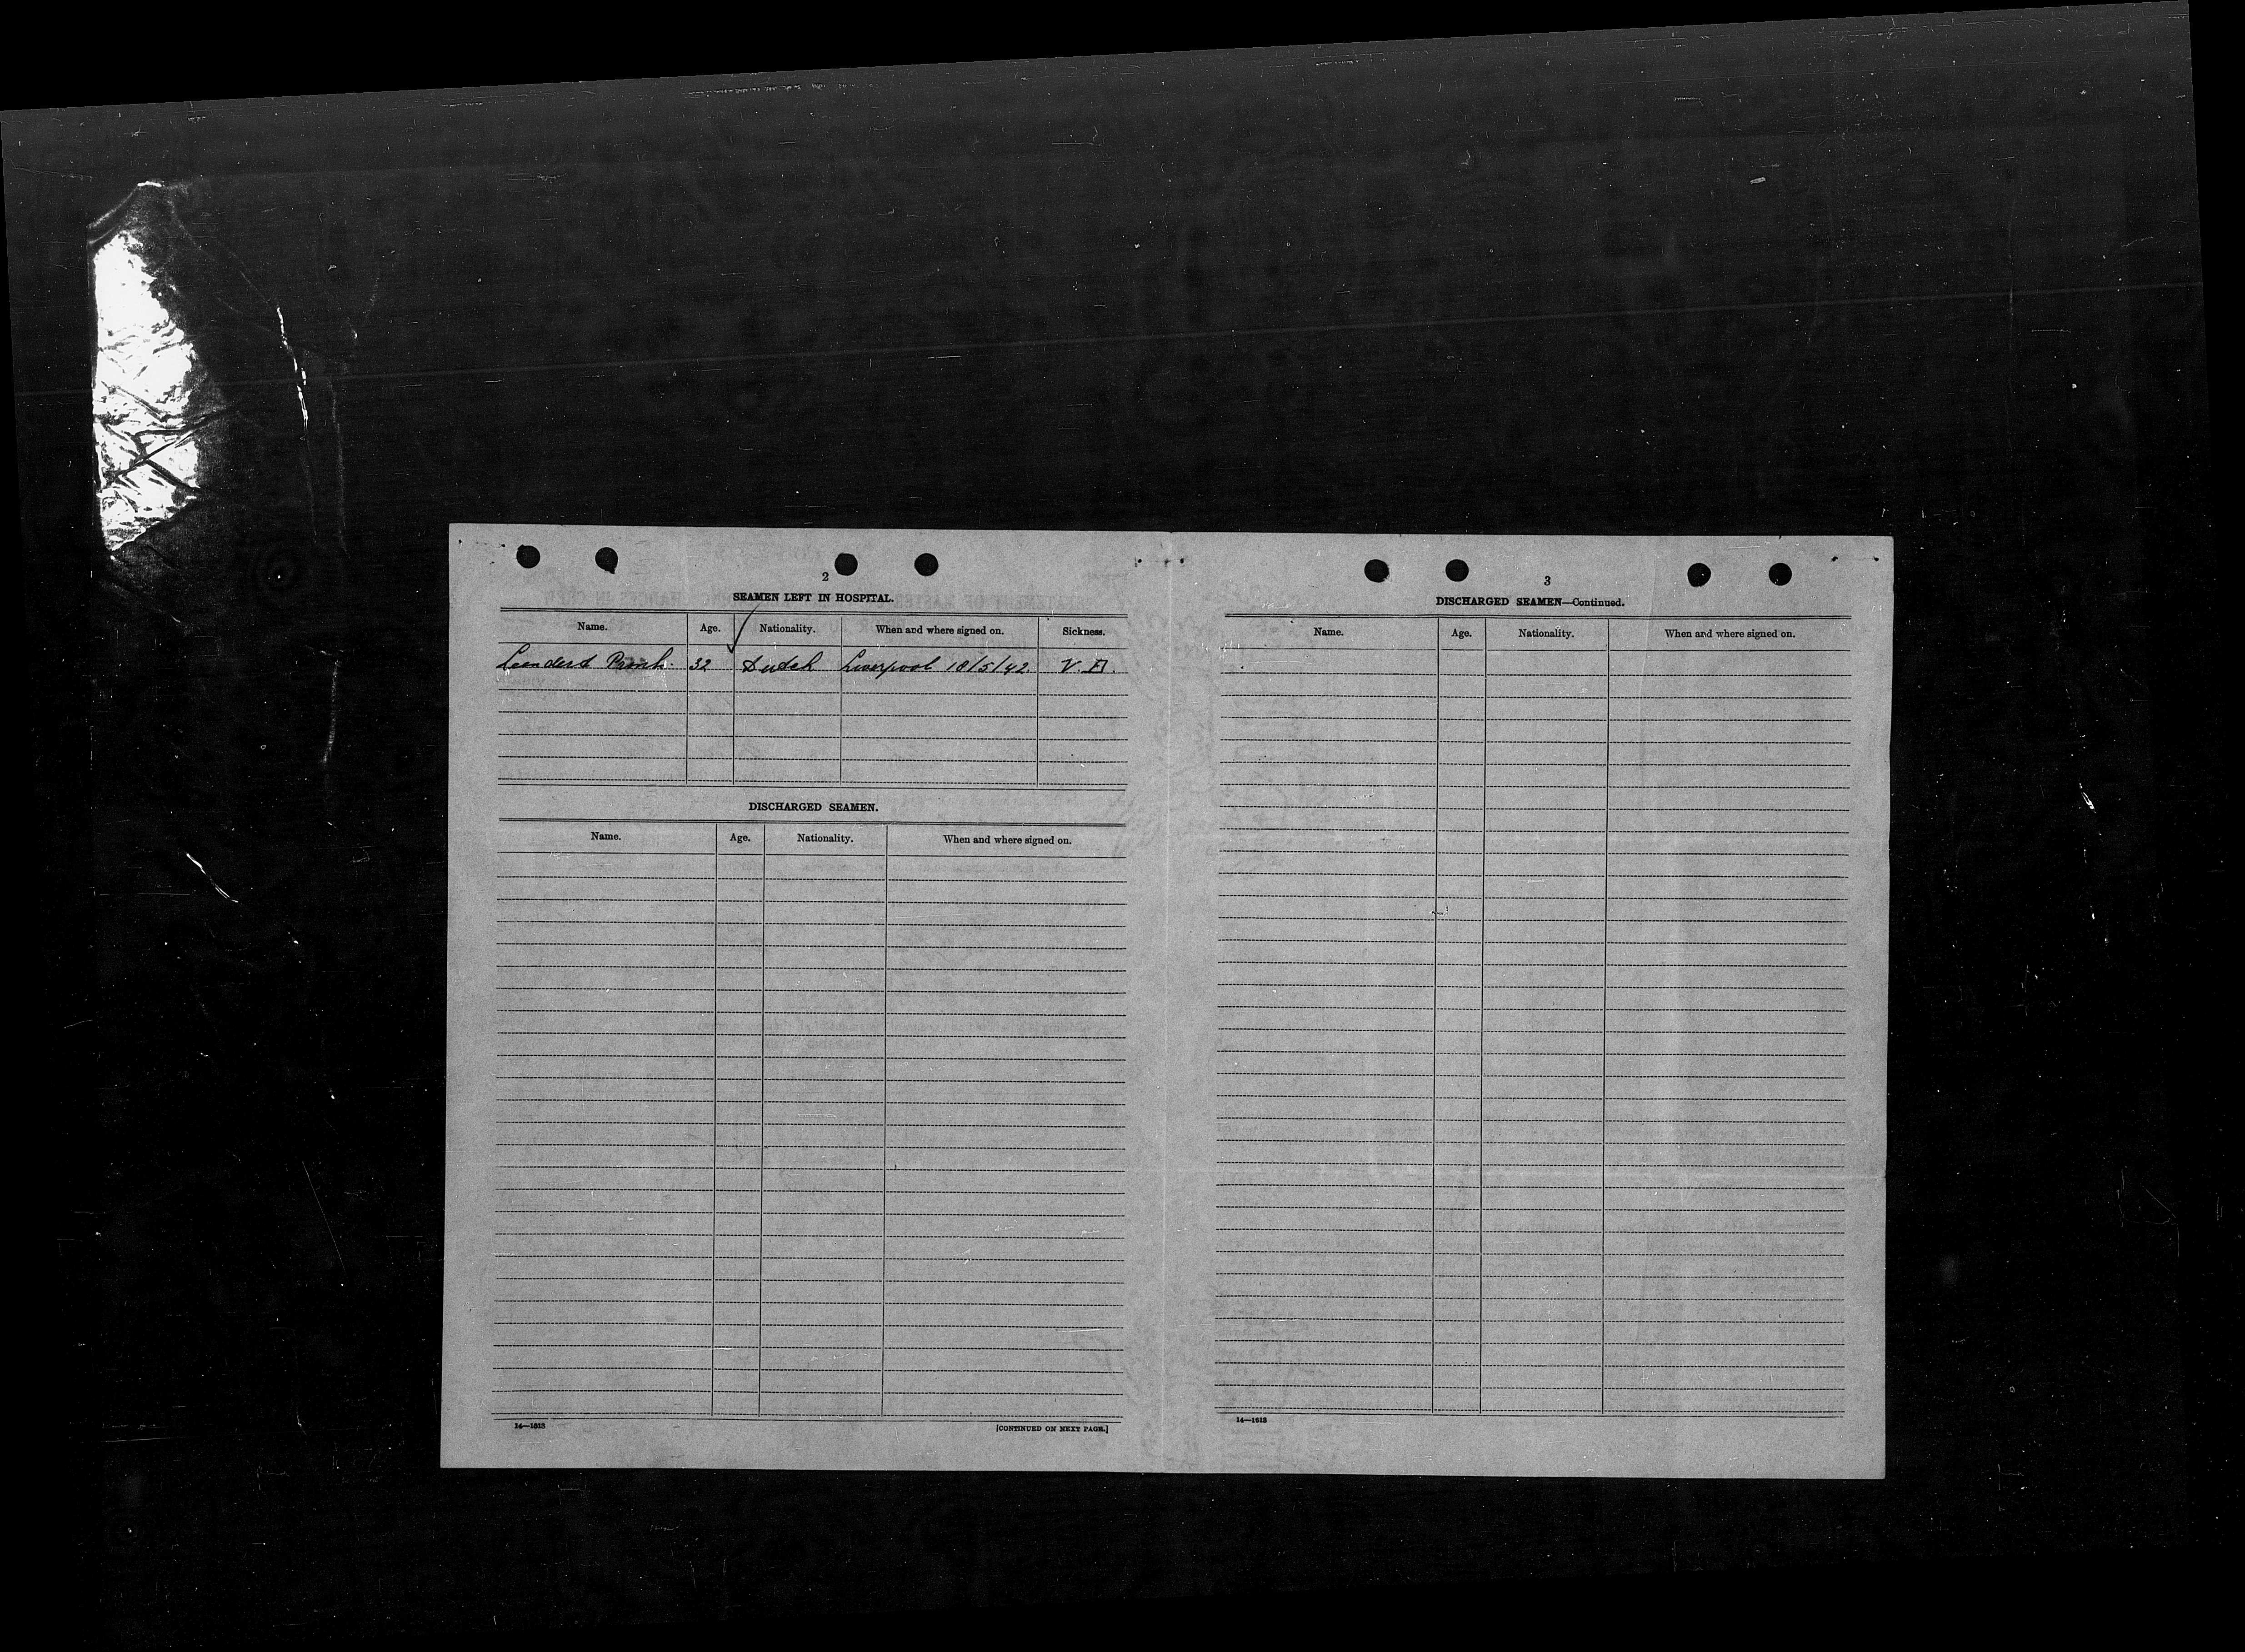 2
SEAMEN LEFT IN HOSPITAL.
Name. Age. Nationality. When and where signed on. Sickness.
Leendert Pronk. 32 Dutch Liverpool 18/5/42. V.D.
DISCHARGED SEAMEN.
Name. Age. Nationality. When and where signed on.
14—1613
[CONTINUED ON NEXT PAGE.]
3
DISCHARGED SEAMEN—Continued.
Name. Age. Nationality. When and where signed on.
14—1613